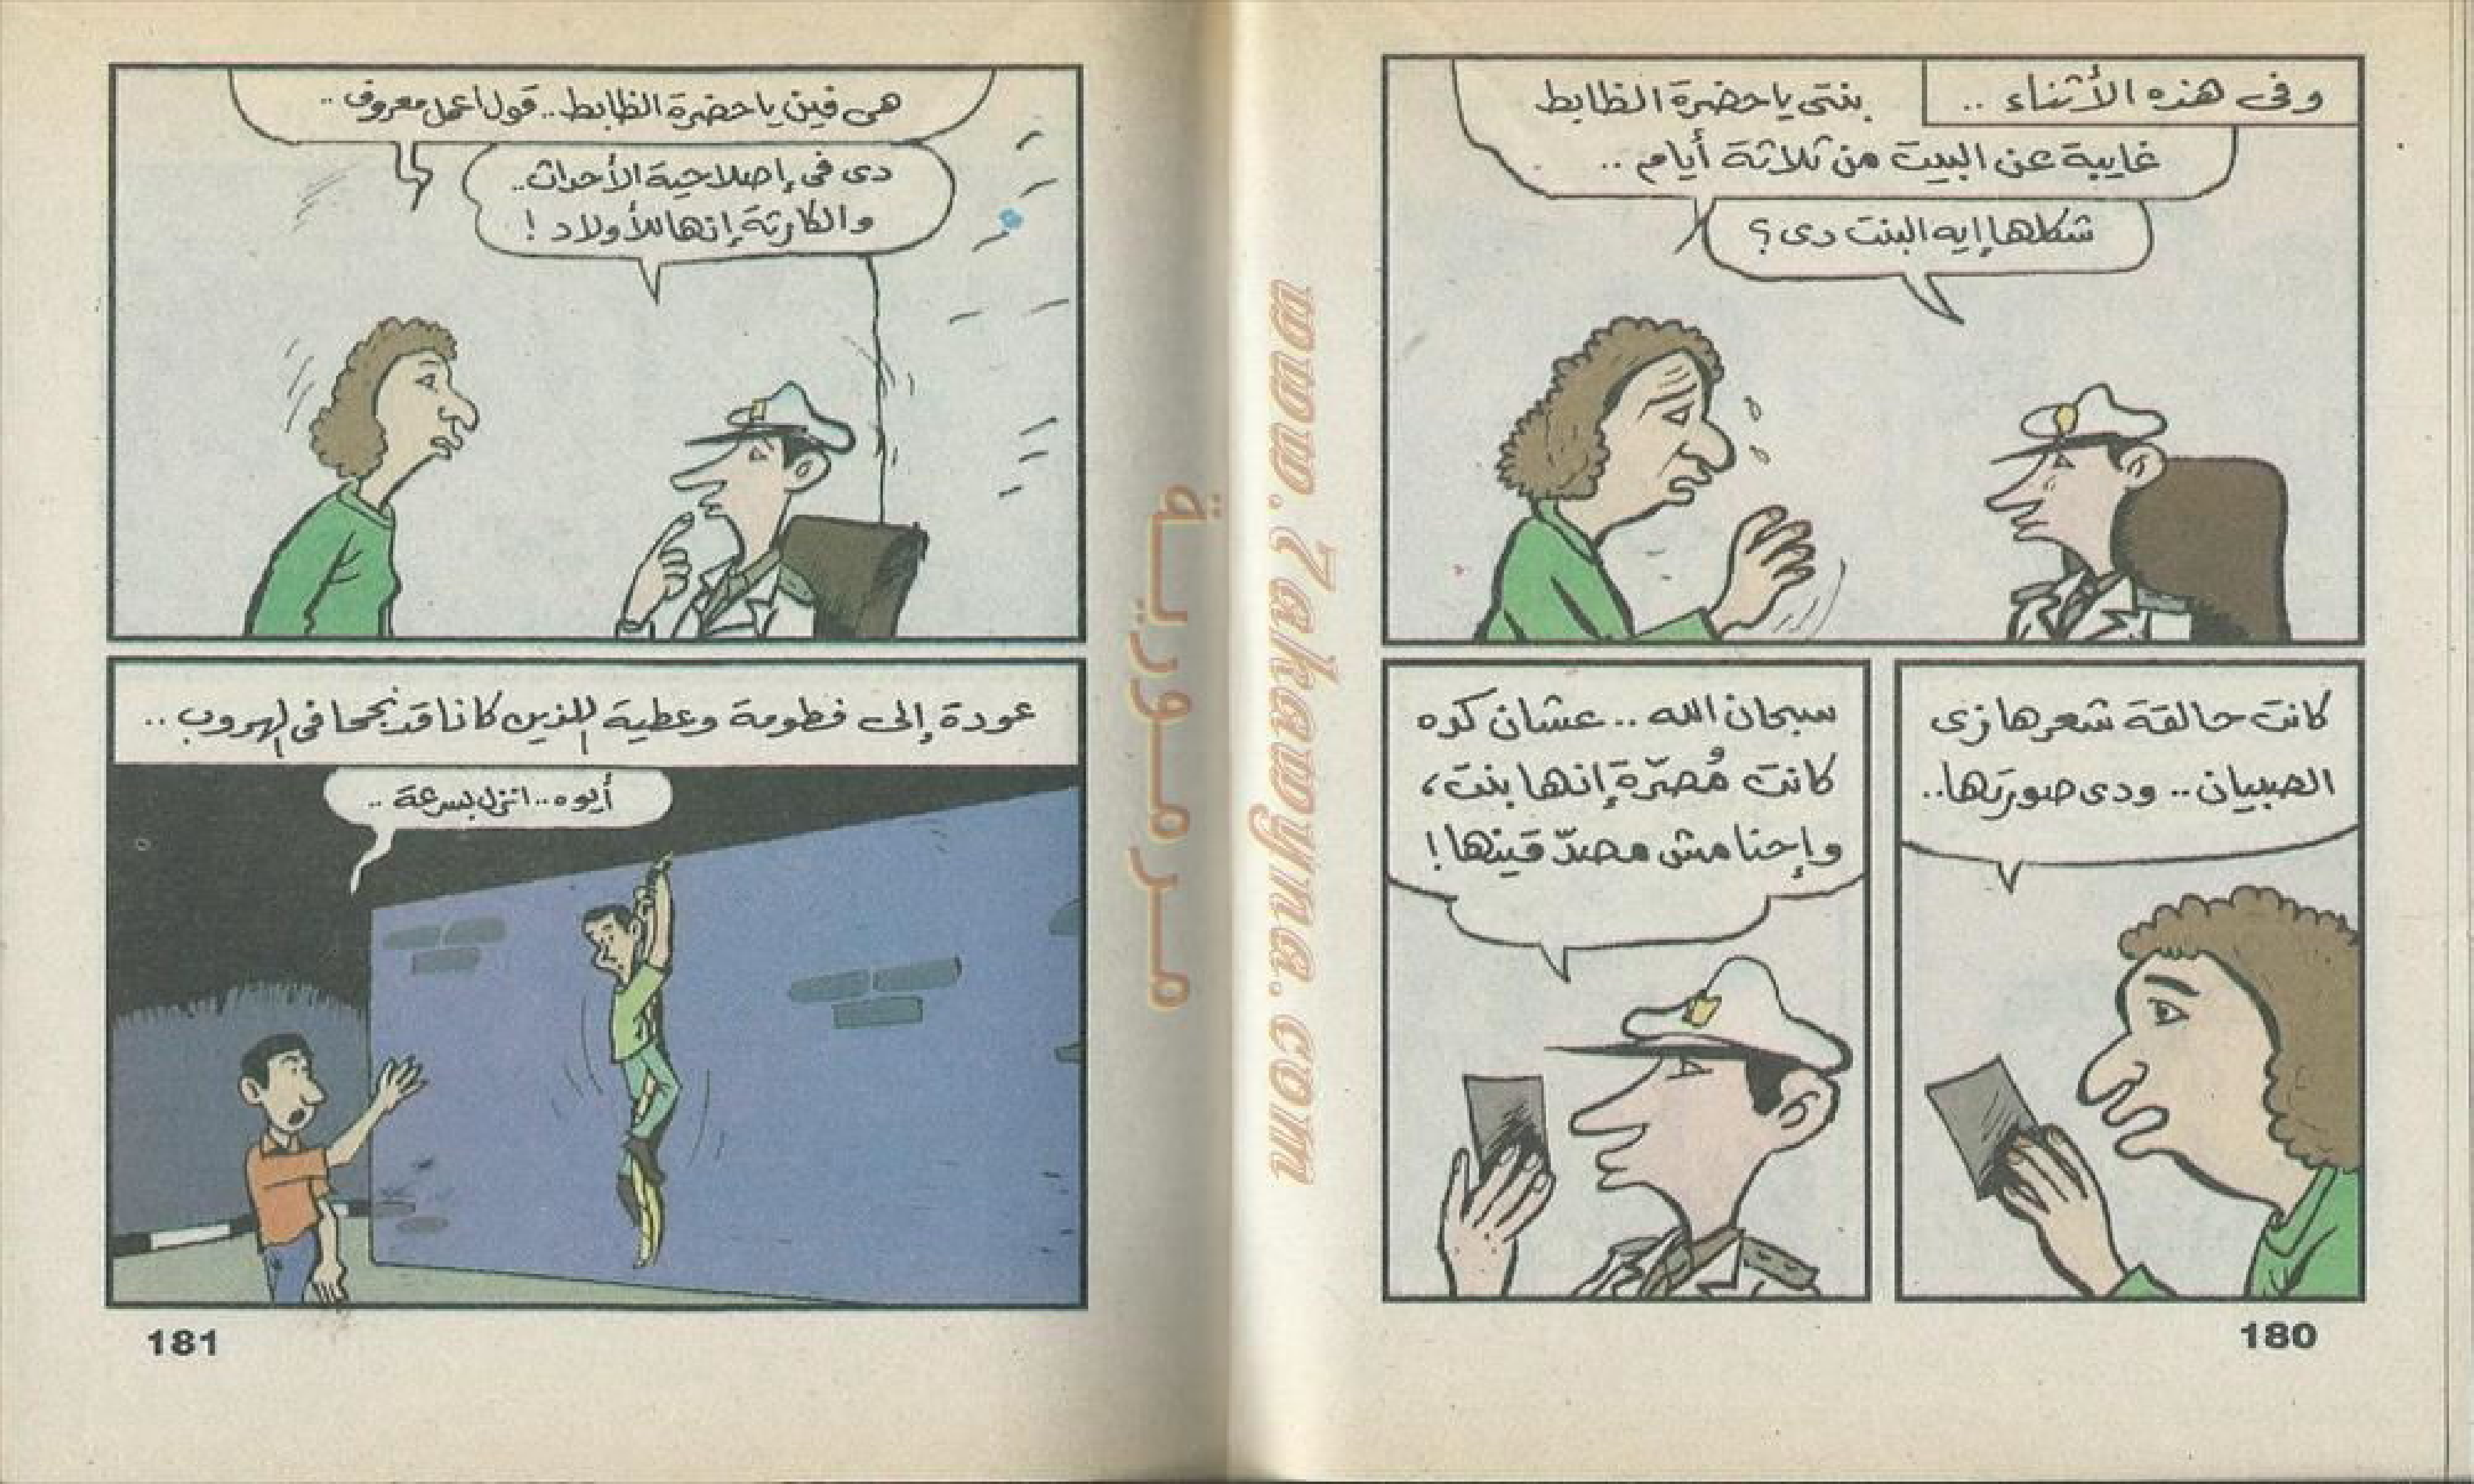 وفى هذه الأثناء ..
بنتى يا حضرة الظابط
غايبة عن البيت من ثلاثة أيام ..
شكلها إيه البنت دى؟
كانت حالقة شعرها زى
الصبيان .. ودى صورتها ..
سبحان الله .. عشان كده
كانت مُصرّة إنها بنت،
وإحنا مش مصدّقينها!
180
هى فين يا حضرة الظابط .. قول اعمل معروف ..
دى فى إصلاحية الأحداث ..
والكارثة إنها للأولاد!
عودة إلى فطومة وعطية اللذين كانا قد نجحا فى الهروب ..
أيوه .. انزل بسرعة ..
181
مرمورية
www.7akawyna.com